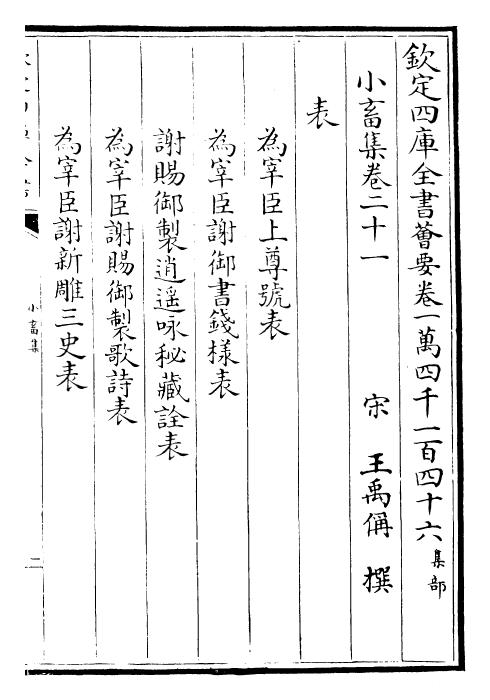 欽定四庫全書薈要卷一萬四千一百四十六集部
小畜集卷二十一
宋 王禹偁 撰
表
為宰臣上尊號表
為宰臣謝御書錢様表
謝賜御製逍遥咏秘藏詮表
為宰臣謝賜御製歌詩表
為宰臣謝新雕三史表
小畜集